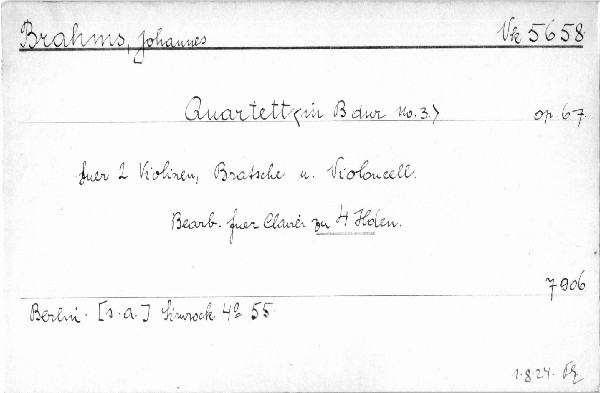 Brahms, Johannes Vk 5658
Quartett (in B dur No. 3.) op. 67.
fuer 2 Violinen, Bratsche u. Violoncell.
Bearb. fuer Clavier zu 4 Hden.
7906
Berlin. [s. a.] Simrock 4° 55
1.8.24.